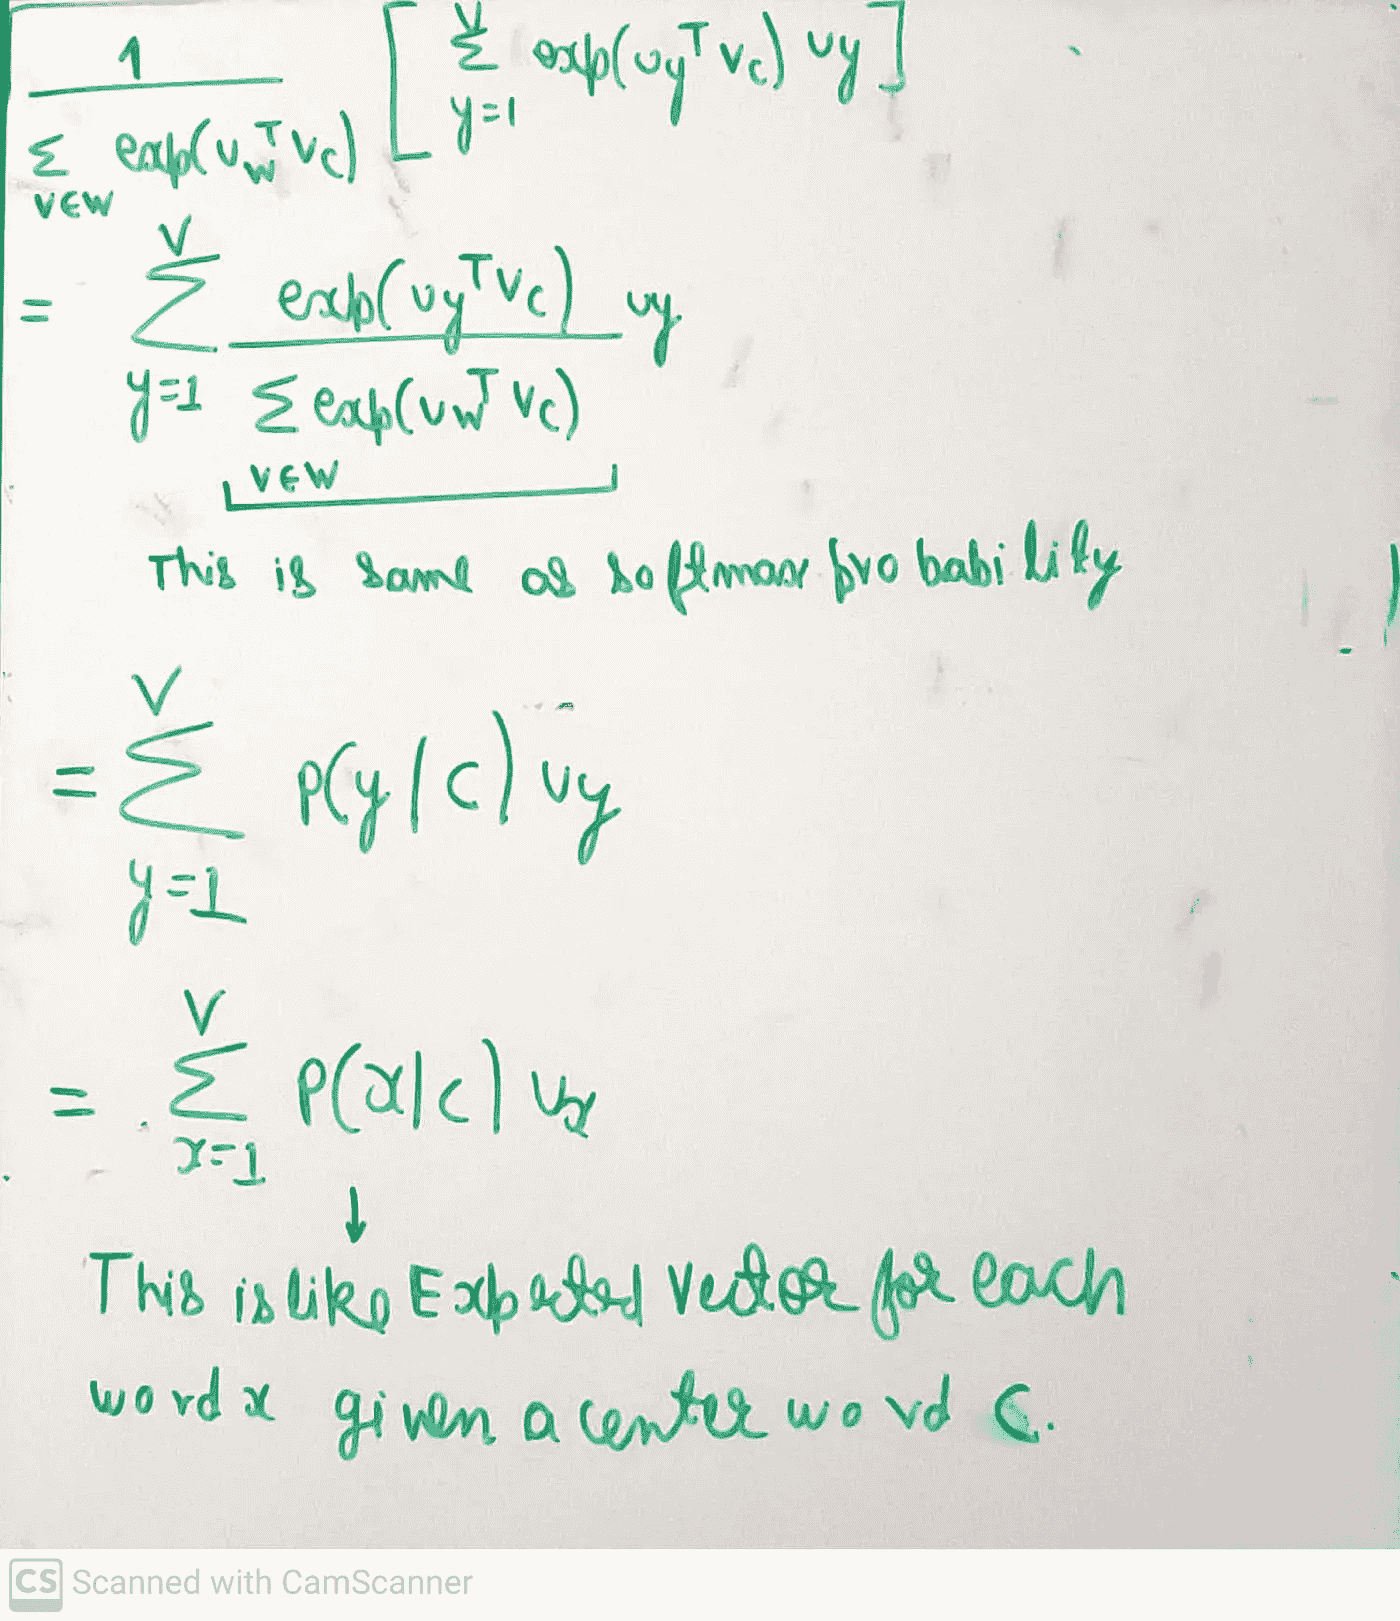 1 / Σ_{v∈w} exp(u_w^T v_c) [ Σ_{y=1}^{V} exp(u_y^T v_c) u_y ]
= Σ_{y=1}^{V} exp(u_y^T v_c) / Σ_{v∈w} exp(u_w^T v_c) u_y
This is same as softmax probability
= Σ_{y=1}^{V} p(y/c) u_y
= Σ_{x=1}^{V} P(x|c) u_x
↓
This is like Expected Vector for each
word x given a center word c.
CS Scanned with CamScanner